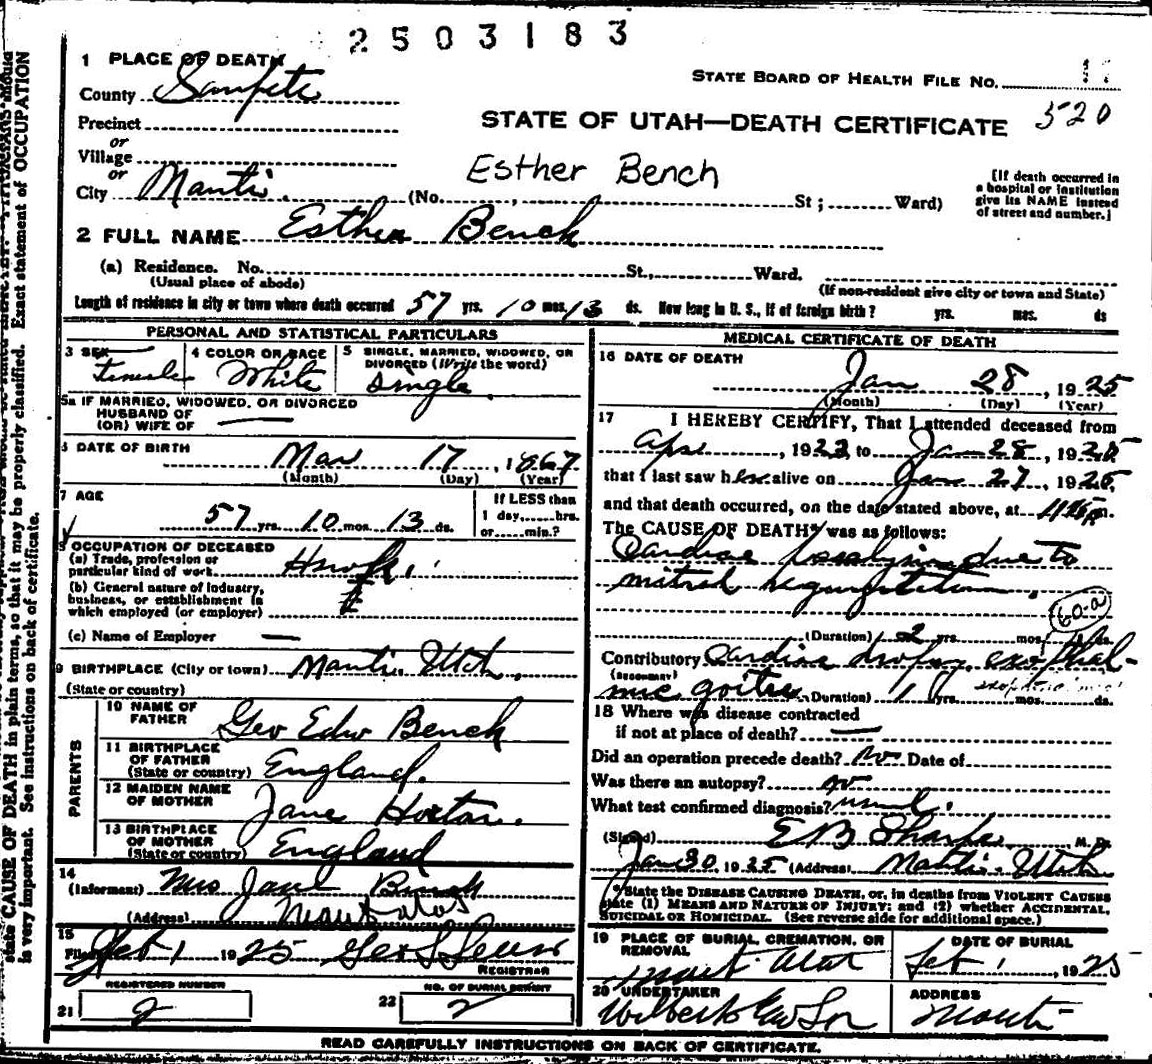 2503183
1 PLACE OF DEATH
STATE BOARD OF HEALTH FILE NO.
County Sanpete
520
Precinct
STATE OF UTAH—DEATH CERTIFICATE
or
Village
Esther Bench
or
City Manti. (No. , St; Ward)
[If death occurred in a hospital or institution give its NAME instead of street and number.]
2 FULL NAME Esther Bench
(a) Residence. No. St., Ward.
(Usual place of abode)
(If non-resident give city or town and State)
Length of residence in city or town where death occurred 57 yrs. 10 mos. 13 ds. How long in U. S., if of foreign birth? yrs. mos. ds
PERSONAL AND STATISTICAL PARTICULARS
3 SEX Female
4 COLOR OR RACE White
5 SINGLE, MARRIED, WIDOWED, OR DIVORCED (Write the word) Single
5a IF MARRIED, WIDOWED, OR DIVORCED
HUSBAND OF
(OR) WIFE OF
6 DATE OF BIRTH
Mar 17, 1867
(Month) (Day) (Year)
7 AGE
57 yrs. 10 mos. 13 ds.
If LESS than
1 day, hrs.
or min.?
8 OCCUPATION OF DECEASED
(a) Trade, profession or
particular kind of work
(b) General nature of industry,
business, or establishment in
which employed (or employer)
(c) Name of Employer
9 BIRTHPLACE (City or town) Manti. Utah.
(State or country)
PARENTS
10 NAME OF FATHER Geo Edw Bench
11 BIRTHPLACE OF FATHER (State or country) England.
12 MAIDEN NAME OF MOTHER Jane Horton.
13 BIRTHPLACE OF MOTHER (State or country) England
14
(Informant) Mrs Jane Bench
(Address) Manti Utah
15
Filed Feb 1 1925
REGISTRAR
REGISTERED NUMBER
21 2
NO. OF BURIAL PERMIT
22 2
MEDICAL CERTIFICATE OF DEATH
16 DATE OF DEATH
Jan 28, 1925
(Month) (Day) (Year)
17 I HEREBY CERTIFY, That I attended deceased from
Apr , 1923 to Jan 28, 1925
that I last saw her alive on Jan 27, 1925,
and that death occurred, on the date stated above, at m.
The CAUSE OF DEATH* was as follows:
Cardiac paralysis due to
mitral regurgitation.
60-a
(Duration) 2 yrs. mos. ds.
Contributory Cardiac dropsy, exopthal-
(SECONDARY)
mic goitre (Duration) yrs. mos. ds.
18 Where was disease contracted
if not at place of death?
Did an operation precede death? no Date of
Was there an autopsy? no
What test confirmed diagnosis? usual.
(Signed) E B Sharpe M. D.
Jan 30 1925 (Address) Manti. Utah
*State the DISEASE CAUSING DEATH, or, in deaths from VIOLENT CAUSES
state (1) MEANS AND NATURE OF INJURY; and (2) whether ACCIDENTAL,
SUICIDAL or HOMICIDAL. (See reverse side for additional space.)
19 PLACE OF BURIAL, CREMATION, OR REMOVAL
Manti Utah
DATE OF BURIAL
Feb 1, 1925
20 UNDERTAKER
ADDRESS
Manti
READ CAREFULLY INSTRUCTIONS ON BACK OF CERTIFICATE.
state CAUSE OF DEATH in plain terms, so that it may be properly classified. Exact statement of OCCUPATION
is very important. See instructions on back of certificate.